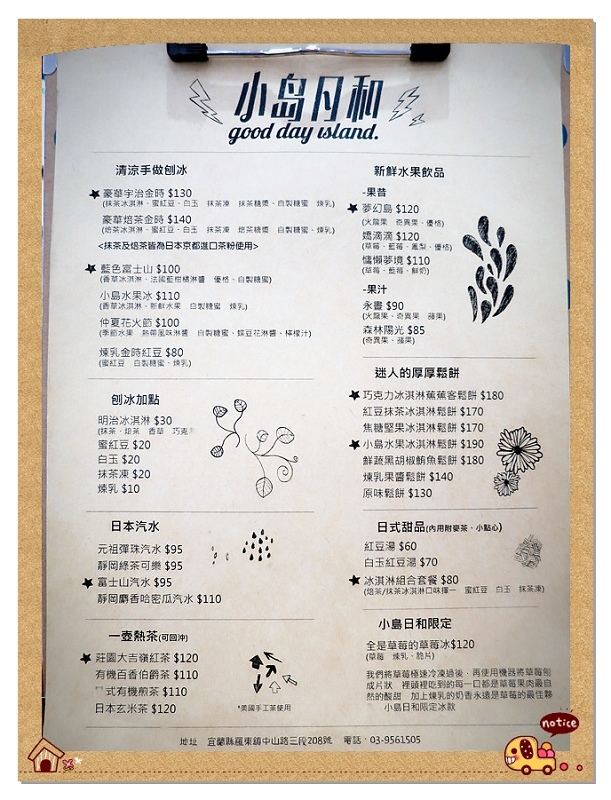 小島日和
good day island.
清涼手做刨冰
豪華宇治金時 $130
(抹茶冰淇淋、蜜紅豆、白玉 抹茶凍 抹茶糖漿、自製糖蜜 煉乳)
豪華焙茶金時 $140
(焙茶冰淇淋、蜜紅豆、白玉 抹茶凍 焙茶糖漿 自製糖蜜 煉乳)
<抹茶及焙茶皆為日本京都進口茶粉使用>
藍色富士山 $100
(香草冰淇淋、法國藍柑橘淋醬 優格、自製糖蜜)
小島水果冰 $110
(香草冰淇淋、新鮮水果 自製糖蜜 煉乳)
仲夏花火節 $100
(季節水果 熱帶風味淋醬 自製糖蜜、蝶豆花淋醬、檸檬汁)
煉乳金時紅豆 $80
(蜜紅豆 自製糖蜜、煉乳)
刨冰加點
明治冰淇淋 $30
(抹茶、焙茶 香草 巧克
蜜紅豆 $20
白玉 $20
抹茶凍 $20
煉乳 $10
日本汽水
元祖彈珠汽水 $95
靜岡綠茶可樂 $95
富士山汽水 $95
靜岡麝香哈密瓜汽水 $110
一壺熱茶(可回沖)
莊園大吉嶺紅茶 $120
有機百香伯爵茶 $110
式有機煎茶 $110
日本玄米茶 $120
*美國手工茶使用
新鮮水果飲品
-果昔
夢幻島 $120
(火龍果 奇異果、優格)
嬌滴滴 $120
(草莓、藍莓、鳳梨、優格)
慵懶夢境 $110
(草莓、藍莓、鮮奶)
-果汁
永晝 $90
(火龍果、奇異果 蘋果)
森林陽光 $85
(奇異果、蘋果)
迷人的厚厚鬆餅
巧克力冰淇淋蕉蕉客鬆餅 $180
紅豆抹茶冰淇淋鬆餅 $170
焦糖堅果冰淇淋鬆餅 $170
小島水果冰淇淋鬆餅 $190
鮮蔬黑胡椒鮪魚鬆餅 $180
煉乳果醬鬆餅 $140
原味鬆餅 $130
日式甜品(內用附麥茶、小點心)
紅豆湯 $60
白玉紅豆湯 $70
冰淇淋組合套餐 $80
(焙茶/抹茶冰淇淋口味擇一 蜜紅豆 白玉 抹茶凍)
小島日和限定
全是草莓的草莓冰$120
(草莓 煉乳、脆片)
我們將草莓極速冷凍過後，再使用機器將草莓刨
成片狀 裡頭裡吃到的每一口都是草莓果肉最自
然的酸甜 加上煉乳的奶香永遠是草莓的最佳夥
小島日和限定冰款
地址 宜蘭縣羅東鎮中山路三段208號 電話：03-9561505
notice